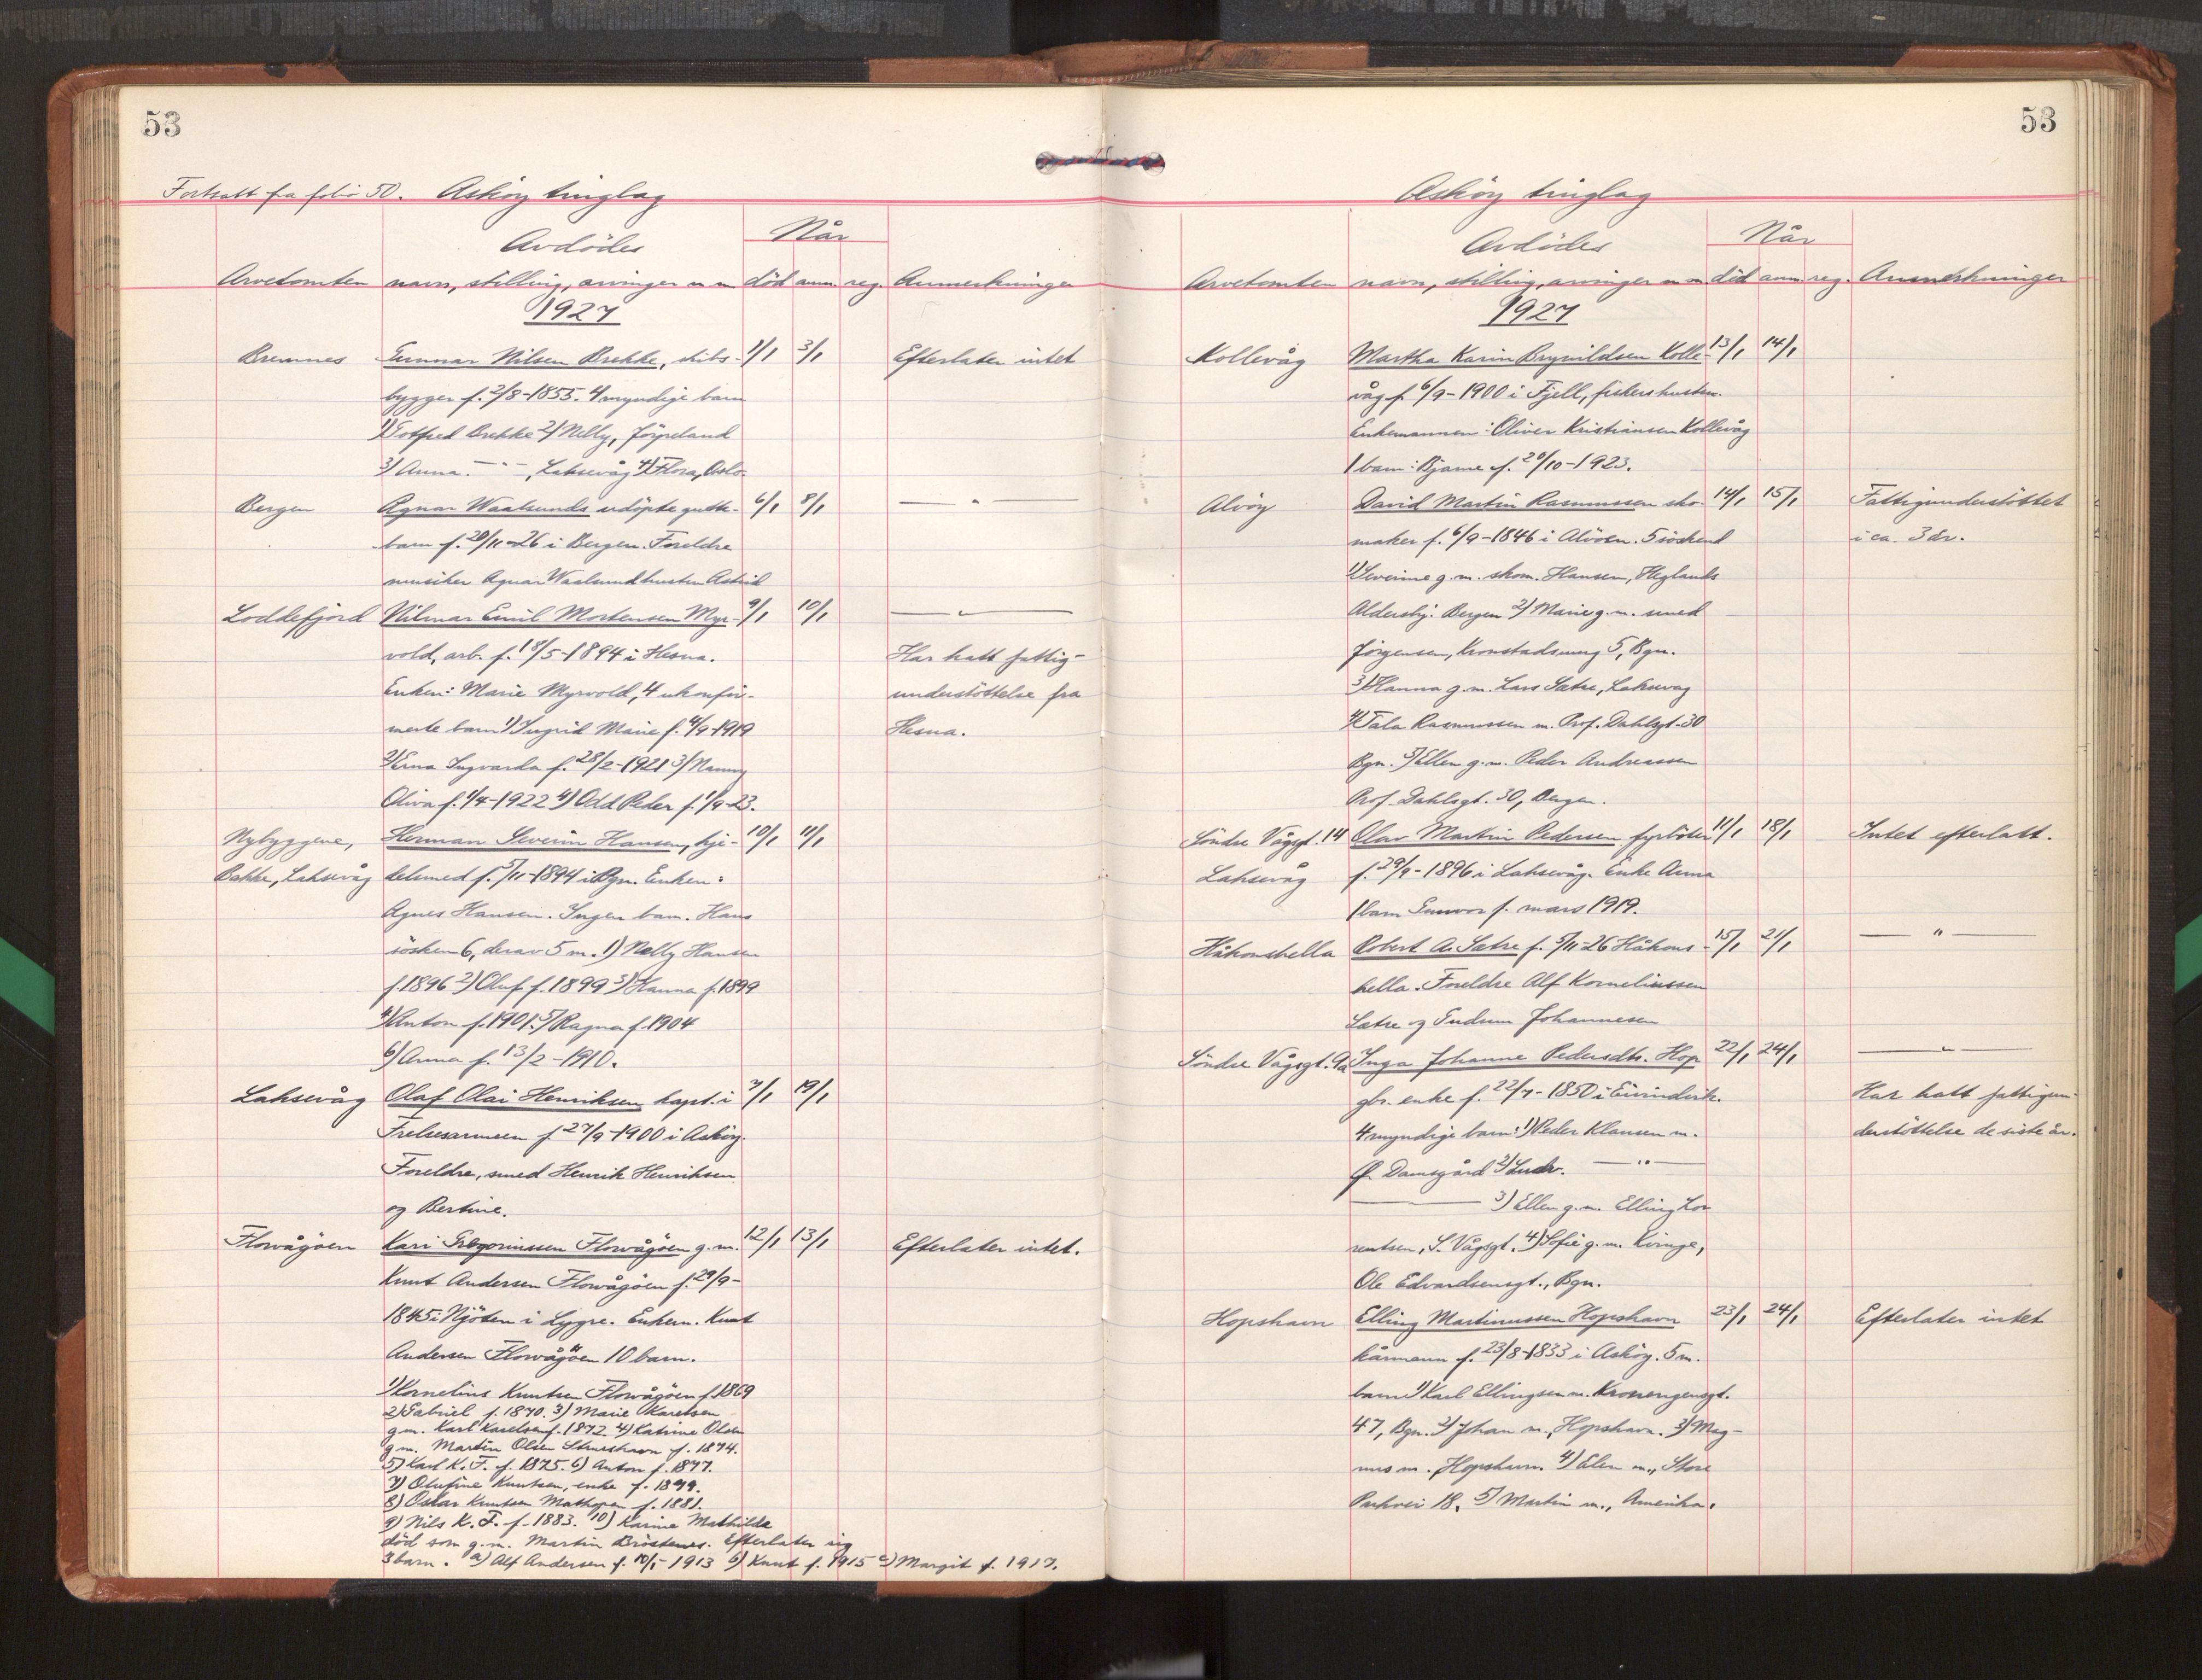 53
Fortsatt fra folio 50. Askøy tinglag
Når
Avdödes
Arvetomten navn, stilling, arvinger m m död anm. reg. Anmerkninger
1927
Bremnes Gunnar Nilsen Brekke, skibs- 1/1 3/1 Efterlater intet
bygger f. 2/8-1855. 4 myndige barn
1) Gotfred Brekke 2) Nelly, Jörpeland
3) Anna - " -, Laksevåg 4) Flora, Oslo.
Bergen Agnar Waalsunds udöpte gutte- 6/1 8/1 — " —
barn f. 28/11-26 i Bergen. Foreldre
musiker Agnar Waalsund hustru Astrid
Loddefjord Hilmar Emil Mortensen Myr- 9/1 10/1 — " —
vold, arb. f. 18/5-1894 i Hesna. Har hatt fattig-
Enken: Marie Myrvold, 4 ukonfir- understöttelse fra
merte barn 1) Ingrid Marie f. 4/9-1919 Hesna.
2) Erna Ingvarda f. 28/2-1921 3) Nanny
Oliva f. 1/4-1922 4) Odd Peder f. 1/9-23.
Nybyggene, Herman Severin Hansen, kje- 10/1 11/1
Bakke, Laksevåg delsmed f. 5/11-1894 i Bgn. Enken:
Agnes Hansen. Ingen barn. Hans
sösken 6, derav 5 m. 1) Nelly Hansen
f. 1896 2) Oluf f. 1899 3) Hanna f. 1899
4) Anton f. 1901. 5) Ragna f. 1904
6) Anna f. 13/2-1910.
Laksevåg Olaf Olai Henriksen kapt. i 7/1 19/1
Frelsesarmeen f. 27/9-1900 i Askøy.
Foreldre, smed Henrik Henriksen
og Bertine.
Florvågöen Kari Gregoriussen Florvågöen g. m. 12/1 13/1 Efterlater intet.
Knut Andersen Florvågöen f. 29/9-
1845 i Njöten i Lygre. Enkem. Knut
Andersen Florvågöen 10 barn.
1) Kornelius Knutsen Florvågöen f. 1869
2) Gabriel f. 1870. 3) Marie Karelsen
g m. Karl Karelsen f. 1872. 4) Katrine Olsen
g m. Martin Olsen Strusshavn f. 1874.
5) Karl K. F. f. 1875. 6) Anton f. 1877.
7) Olufine Knutsen, enke f. 1899.
8) Oskar Knutsen Mathopen f. 1881.
9) Nils K. F. f. 1883. 10) Karine Mathilde
död som g. m. Martin Bröstenes. Efterlater sig
3 barn. a) Alf Andersen f. 10/5-1913 b) Knut f. 1915 c) Margit f. 1917.
53
Askøy tinglag
Når
Avdödes
Arvetomten navn, stilling, arvinger m m död anm. reg. Anmerkninger
1927
Kollevåg Martha Karin Brynildsen Kolle- 13/1 14/1
våg f. 6/9-1900 i Fjell, fiskershustru.
Enkemannen: Oliver Kristiansen Kollevåg
1 barn: Bjarne f. 20/10-1923.
Alvöy David Martin Rasmussen sko- 14/1 15/1 Fattigunderstöttet
maker f. 6/9-1846 i Alvöen. 5 söskend i ca. 3 år.
1) Severine g. m. skom. Hansen, Heglands
Aldershj. Bergen 2) Marie g. m. smed
Jörgensen, Kronstadsveg 5, Bgn.
3) Hanna g. m. Lars Sætre, Laksevåg
4) Tala Rasmussen m. Prof. Dahlsgt. 30
Bgn. 5) Ellen g. m. Peder Andreassen
Prof. Dahlsgt. 30, Bergen.
Söndre Vågsgt. 14 Olav Martin Pedersen fyrböter 11/1 18/1 Intet efterlatt.
Laksevåg f. 29/9-1896 i Laksevåg. Enke Anna
1 barn Gunvor f. mars 1919.
Håkonshella Robert A. Sætre f. 5/11-26 Håkons- 15/1 21/1 — " —
hella. Foreldre Alf Korneliussen
Sætre og Gudrun Johannesen
Söndre Vågsgt. 9a Inga Johanne Pedersdtr. Hop 22/1 24/1 — " —
gbr. enke f. 22/7-1850 i Eivindvik. Har hatt fattigun-
4 myndige barn: 1) Peder Klausen m. derstöttelse de siste år.
Ö. Damsgård 2) Ludv. — " —
3) Ellen g. m. Elling Lor
rentsen, S. Vågsgt. 4) Sofie g. m. Kvinge,
Ole Edvardsensgt., Bgn.
Hopshavn Elling Martinussen Hopshavn 23/1 24/1 Efterlater intet
kårmann f. 23/8-1833 i Askøy. 5 m.
barn 1) Karl Ellingsen m. Kroneengensgt.
47, Bgn. 2) Johan m. Hopshavn. 3) Mag-
nus m. Hopshavn. 4) Elen m., Store
Parkvei 18. 5) Martin m., Amerika.